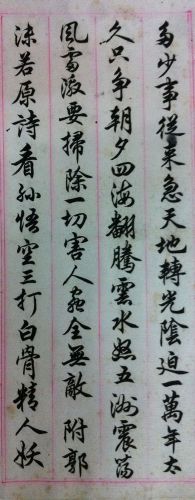 多少事從来急天地轉光陰迫一萬年太
久只争朝夕四海翻騰雲水怒五洲震蕩
風雷激要掃除一切害人虫全無敵 附郭
沫若原詩看孙悟空三打白骨精人妖